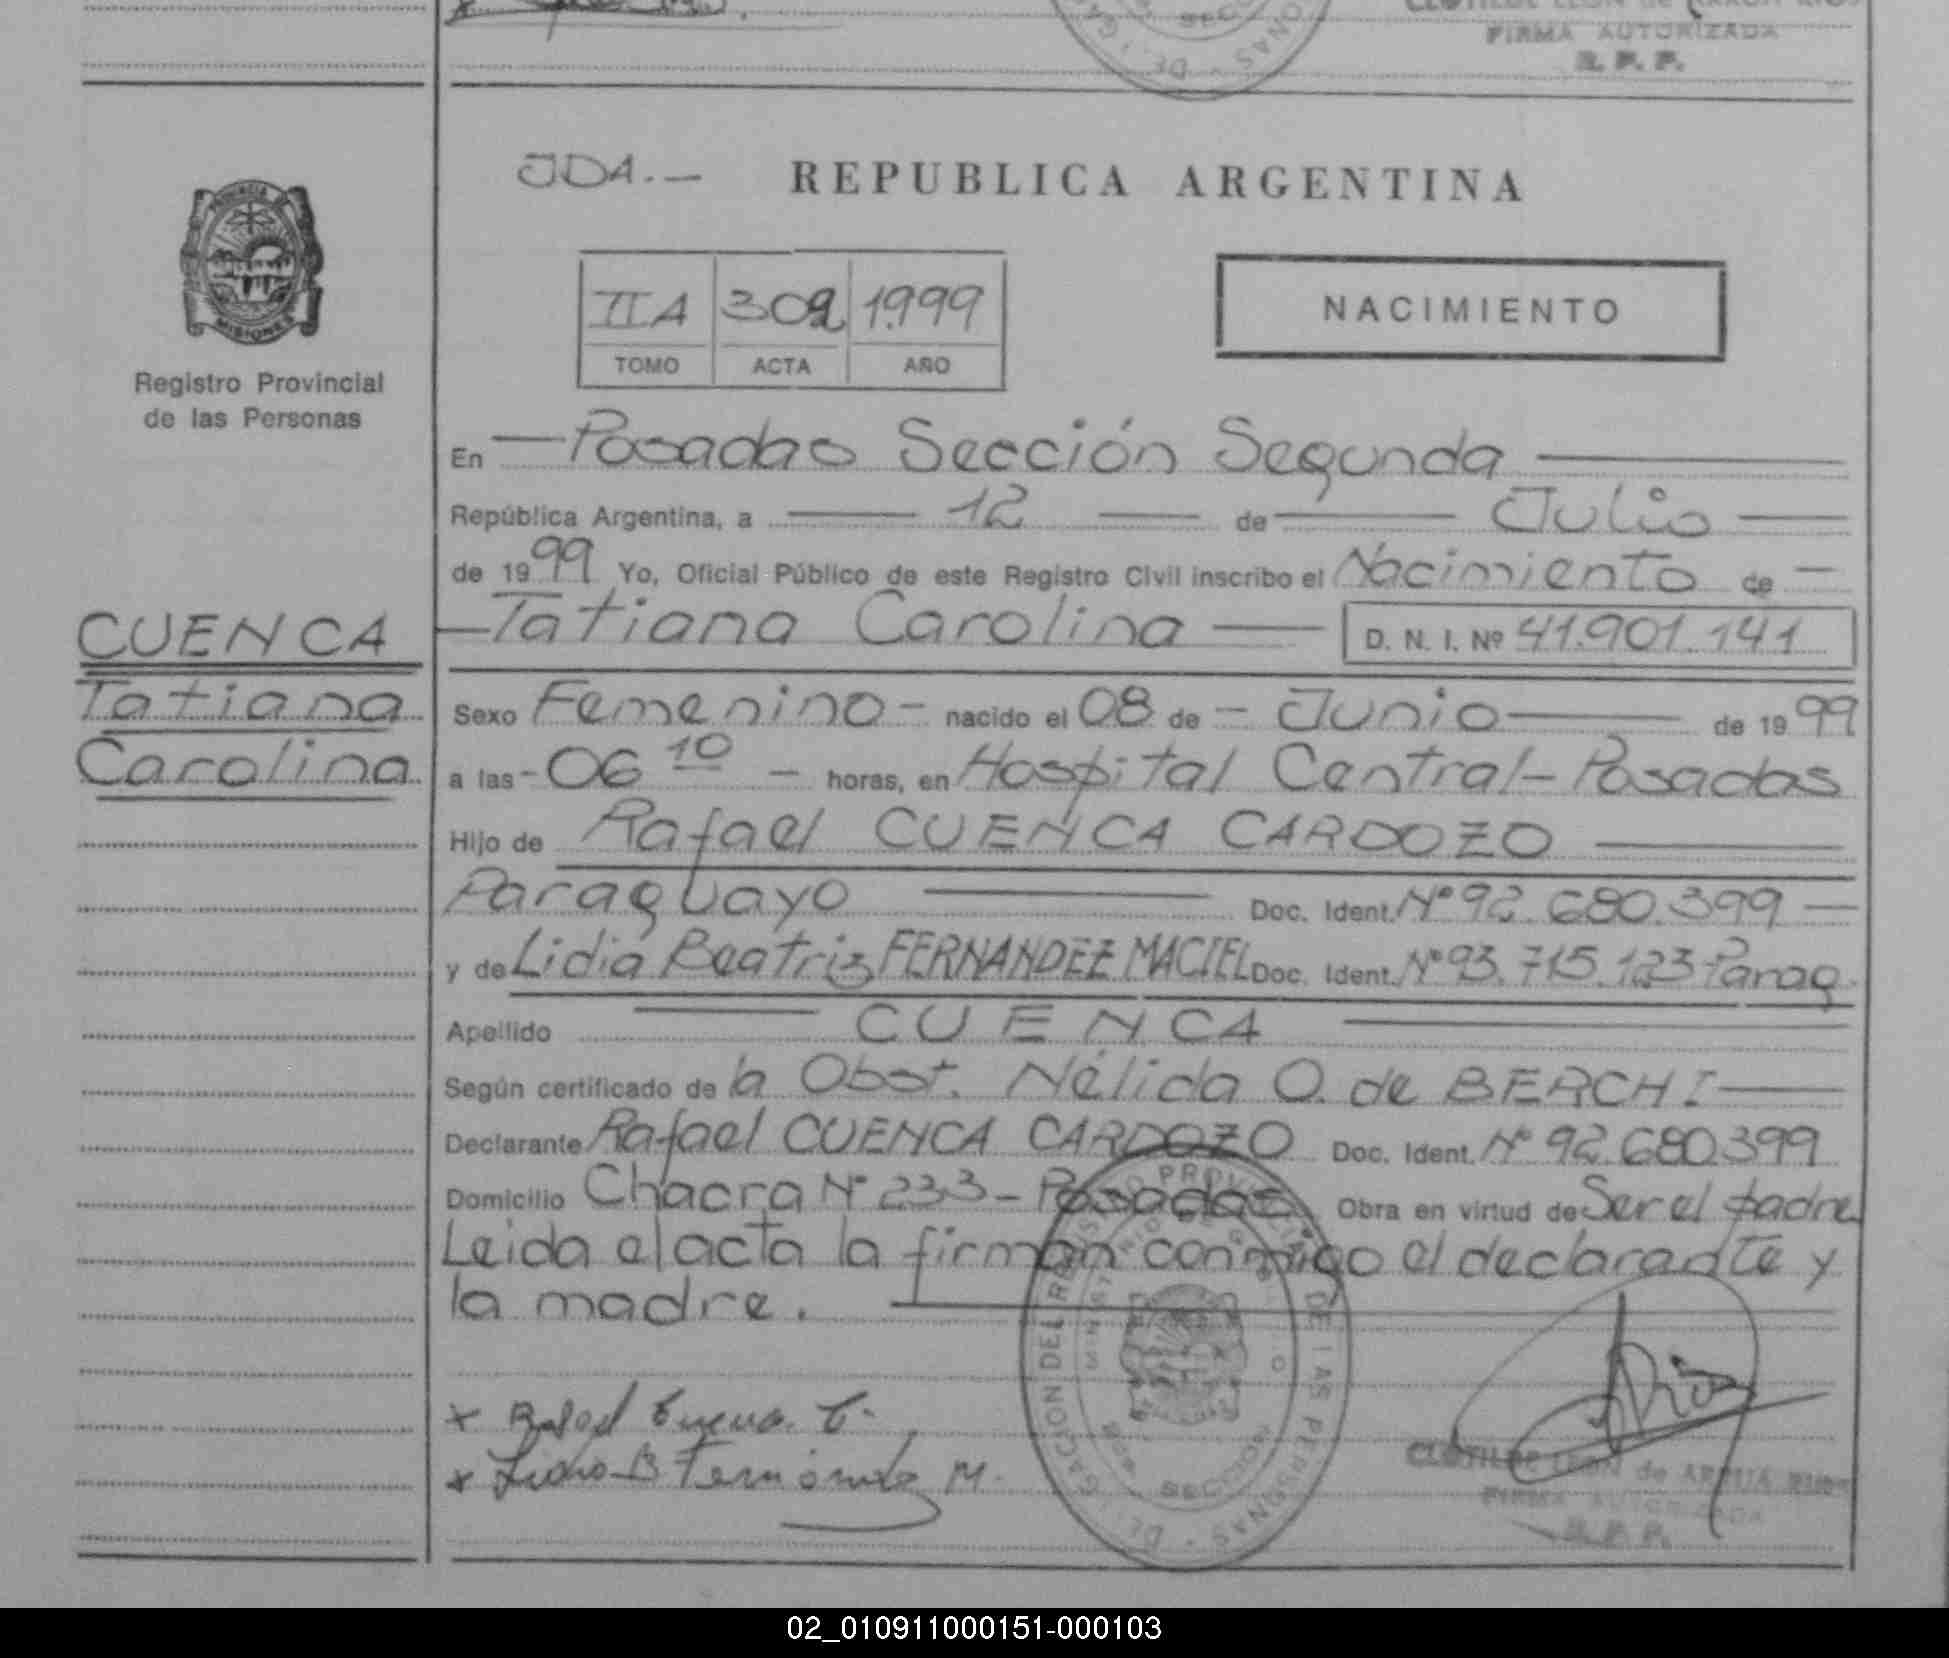 FIRMA AUTORIZADA
R. P. P.
JDA.-
REPUBLICA ARGENTINA
PROVINCIA DE
MISIONES
Registro Provincial
de las Personas
IIA 302 1.999
TOMO ACTA AÑO
NACIMIENTO
En Posadas Sección Segunda
República Argentina, a 12 de Julio
de 1999 Yo, Oficial Público de este Registro Civil inscribo el Nacimiento de
Tatiana Carolina D. N. I. Nº 41.901.141
CUENCA
Tatiana
Carolina
Sexo Femenino - nacido el 08 de - Junio de 1999
a las - 06 10 - horas, en Hospital Central - Posadas
Hijo de Rafael CUENCA CARDOZO
Paraguayo Doc. Ident. Nº 92.680.399
y de Lidia Beatriz FERNANDEZ MACIEL Doc. Ident. Nº 93.715.123 Parag.
Apellido CUENCA
Según certificado de la Obst. Nélida O. de BERCHI
Declarante Rafael CUENCA CARDOZO Doc. Ident. Nº 92.680.399
Domicilio Chacra Nº 233 - Posadas Obra en virtud de Ser el padre
Leida el acta la firman conmigo el declarante y
la madre.
x Rafael Cuenca C.
x Lidia B Fernández M.
DELEGACION DEL REGISTRO PROVINCIAL DE LAS PERSONAS
CLOTILDE LEON de ARRUA RIOS
FIRMA AUTORIZADA
R. P. P.
02_010911000151-000103